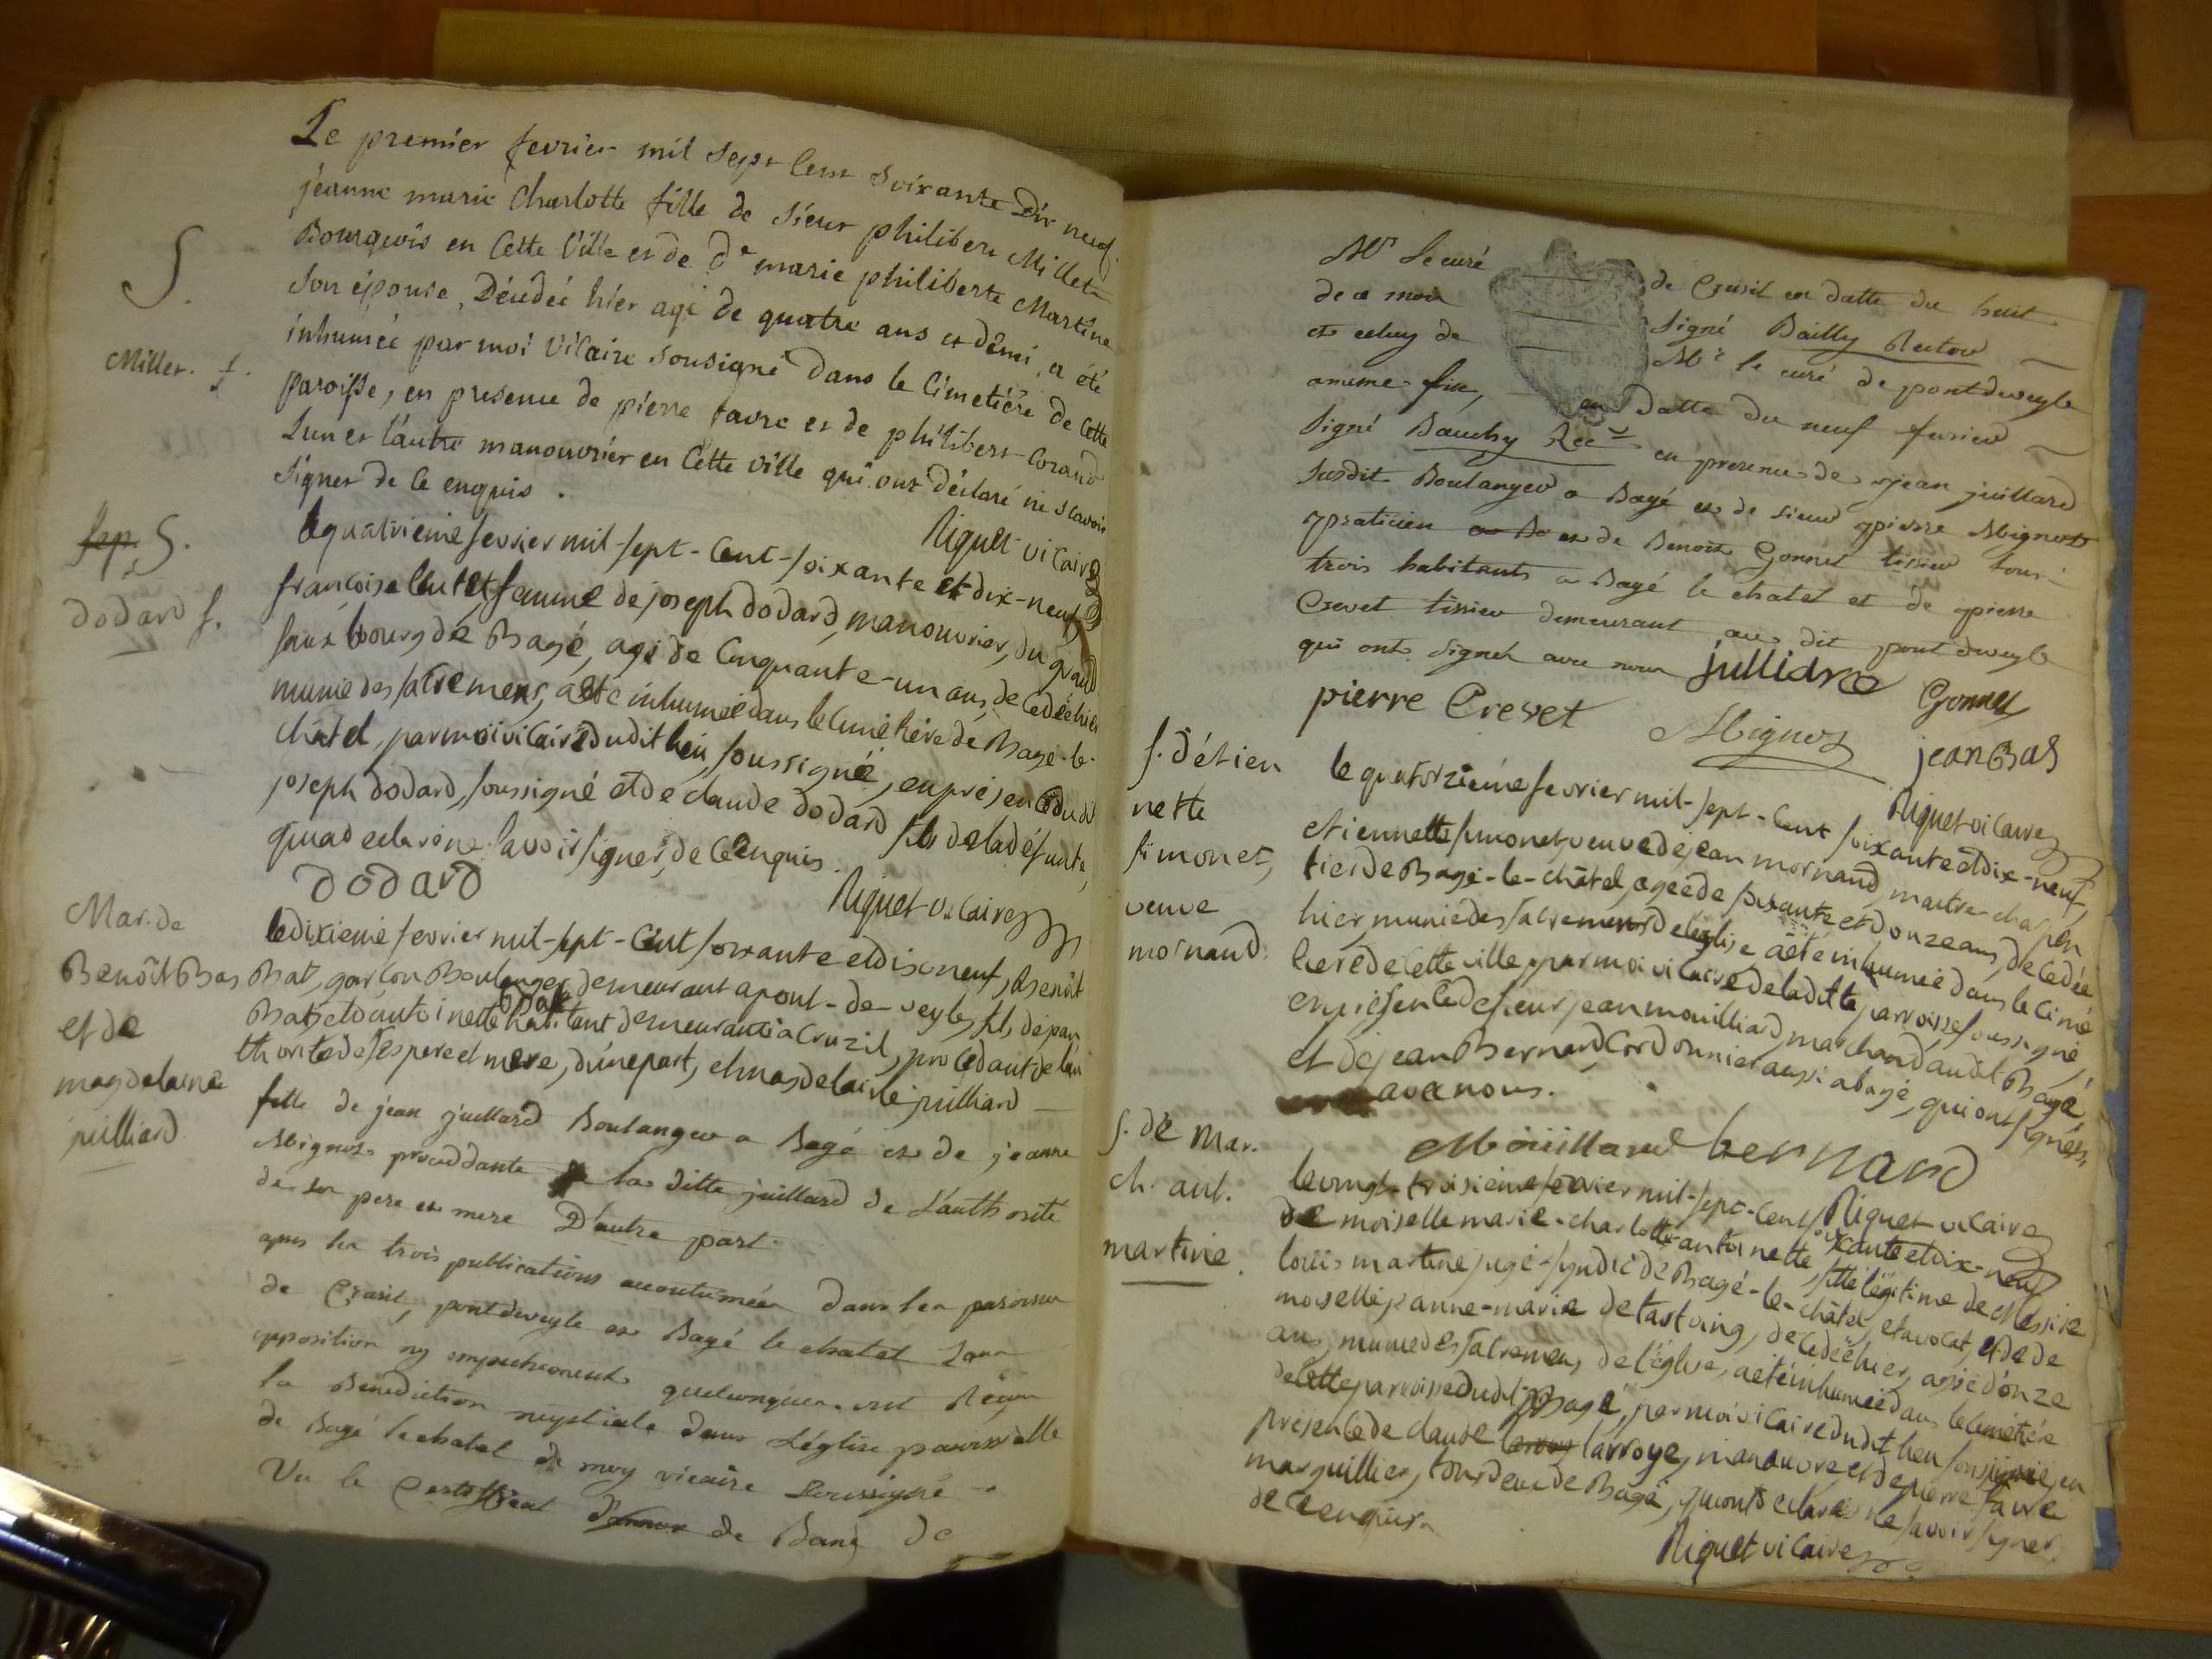 Le premier fevrier mil sept Cent soixante Dix neuf
jeanne marie Charlotte fille de sieur philibert Millet
Bourgeois en Cette Ville et de De marie philiberte Martine
son épouse, Décedéé hier agé de quatre ans et demi, a été
inhuméé par moi Vicaire sousigné dans le Cimetiére de Cette
paroisse, en presence de pierre favre et de philibert Corand
L'un et l'autre manouvriér en Cette ville qui ont déclaré ne scavoir
signer de Ce enquis.
Riquet vicaire
S.
Millet. f.
le quatrieme fevrier mil-sept-Cent-soixante et dix-neuf,
francoise femme de joseph dodard, manouvrier, du grand
faux bourg de Bagé, agé de Cinquante-un ans, decedée hier
munie des sacremens, a eté inhumée dans le Cimetiére de Bagé-le-
châtel, par moi vicaire dudit lieu, soussigné, en présence dudit
joseph dodard, soussigné et de claude dodard fils de la défunte,
qui a declaré ne savoir signer, de Ce enquis.
dodard
Riquet vicaire
sep. S.
dodard f.
le dixieme fevrier mil-sept-Cent soixante et dix neuf, Benoît
Bat, garçon Boulanger demeurant a pont-de-veyle, fils de jean
Bat et d'antoinette demeurants a Cruzil, procedant de l'au
thorité de ses pere et mere, d'une part, et magdelaine juilliard
fille de jean juillard Boulanger a Bagé et de jeanne
Mignot proceddante la ditte juillard de L'authorité
de ses pere et mere D'autre part.
apres les trois publications accoutumées dans les paroisses
de Crusil, pontdeveyle et Bagé le chatel sans
opposition ny empechement quelconques ont Réçu
la Benediction nuptiale dans L'église paroissialle
de Bagé le chatel de moy vicaire soussigné
Vu le Certifficat de Bans de
Mar. de
Benoît Bas
et de
magdelaine
juilliard
Mr Le curé de Crusil en datte du huit
de ce mois signé Bailly Recteur
et celuy de Mr le curé de pontdeveyle
a meme fin, en datte du neuf fevrier
signé Bauchy Recr en presence de jean juillard
susdit Boulanger a Bagé et de sieur pierre Mignot
praticien et de Benoit Gonnet tissier tous
trois habitants a Bagé le chatel et de pierre
Crevet tissier demeurant au dit pont deveyle
qui ont signet avec nous jullidrd
Gonnet
pierre Crevet Mignot jean Bas
Riquet vicaire
f. d'étien
nette
simonet,
veuve
mornand.
le quatorzieme fevrier mil-sept-Cent soixante et dix-neuf,
etiennette simonet, veuve de jean mornand, maitre charpen
tier de Bagé-le-châtel, ageé de soixante et douze ans, decedée
hier, munie des sacremens de l'eglise, a eté inhumée dans le Cime
tiere de Cette ville par moi vicaire de la ditte parroisse soussigné,
en présence de sieur jean mouilliard, marchand audit Bagé
et de jean Bernard Cordonnier aussi a bagé, qui ont signés,
avec nous.
Moüillard bernard
Riquet vicaire
f. de Mar.
ch. ant.
martine.
le vingt-troisieme fevrier mil-sept-Cent soixante et dix-neuf
demoiselle marie-charlotte-antoinette fille légitime de Messire
loüis martine juge-syndic de Bagé-le-châtel, et avocat, et de de
moiselle jeanne-marie detastoing, decedée hier, agée d'onze
ans, munie des sacremens de l'église, a eté inhumée dans le Cimetiére
de Cette parroisse dudit Bagé, par moi vicaire dudit lieu soussigné, en
présence de claude larroye, manouvre et de pierre favre
marguillier, tous deux de Bagé, qui ont declarés ne savoir signer,
de Ce enquis.
Riquet vicaire